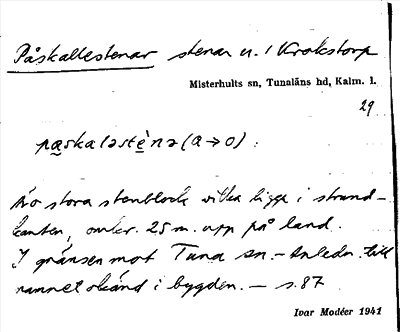 Påskallestenar stenar n. i Krokstorp
Misterhults sn, Tunaläns hd, Kalm. l.
29
paskaləstènə (a→o).
två stora stenblock vilka ligga i strand-
kanten, omkr. 25 m. upp på land.
I gränsen mot Tuna sn. - Anledn. till
namnet okänd i bygden. — s. 87
Ivar Modéer 1941